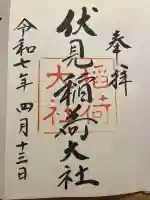 奉拝
伏見稲荷大社
稲荷
大社
令和七年 四月十三日